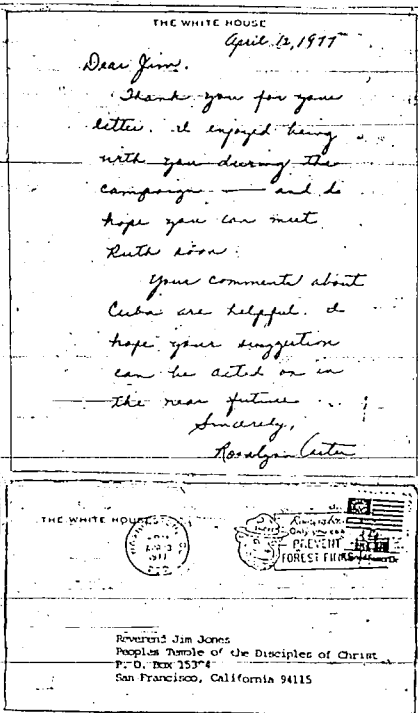 THE WHITE HOUSE
April 12, 1977
Dear Jim.
Thank you for your
letter. I enjoyed being
with you during the
campaign — and do
hope you can meet
Ruth soon.
Your comments about
Cuba are helpful. I
hope your suggestion
can be acted on in
the near future.
Sincerely,
Rosalynn Carter
THE WHITE HOUSE
APR 13
1977
Only you can
PREVENT
FOREST FIRES
Reverend Jim Jones
Peoples Temple of the Disciples of Christ
P. O. Box 15374
San Francisco, California 94115